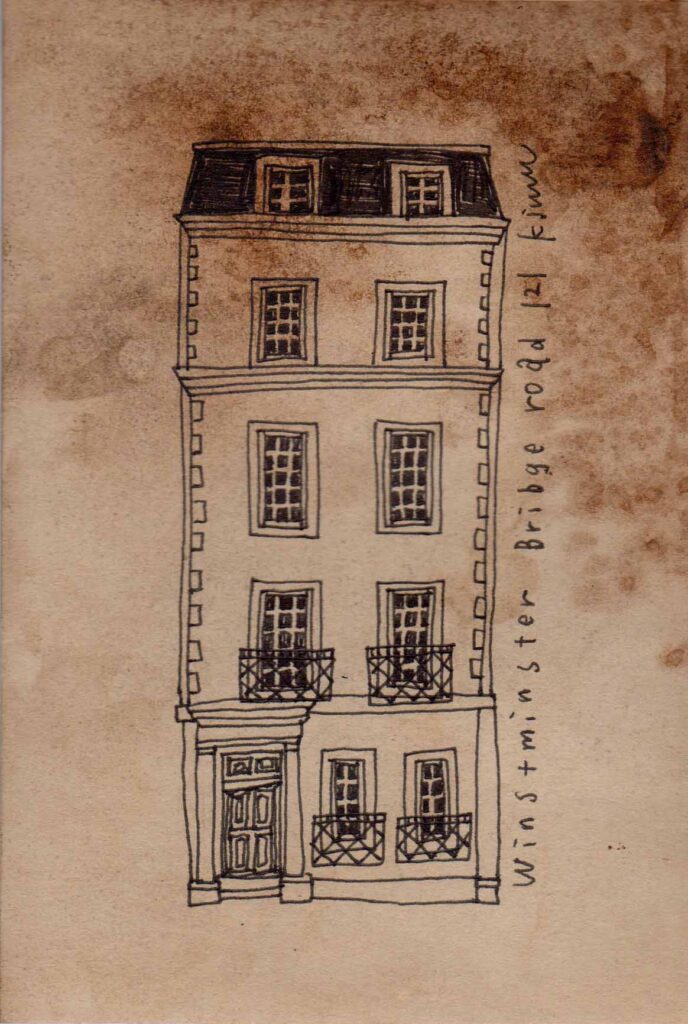 Winstminster Bribge road 121 kimm